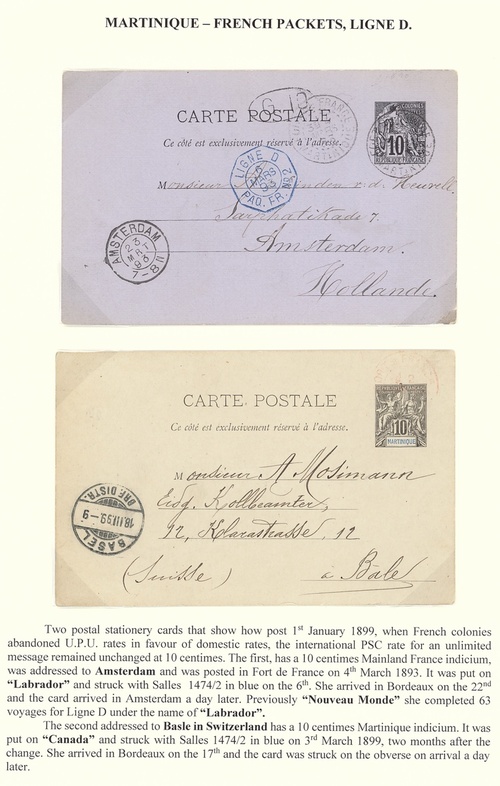 MARTINIQUE – FRENCH PACKETS, LIGNE D.
CARTE POSTALE
Ce côté est exclusivement réservé à l'adresse.
COLONIES
10
LIGNE D
PAQ. FR. Nº 2
Monsieur
v. d. Heuvell.
Sarphatikade 7.
Amsterdam.
Hollande.
AMSTERDAM
23
MRT
93
7-8 II
CARTE POSTALE
Ce côté est exclusivement réservé à l'adresse.
10
MARTINIQUE
Monsieur A Mosimann
Eidg. Zollbeamter,
92, Klarastrasse, 12
(Suisse) à Bale
BASEL
18.III.99.-9
BRF. DISTR.
Two postal stationery cards that show how post 1st January 1899, when French colonies
abandoned U.P.U. rates in favour of domestic rates, the international PSC rate for an unlimited
message remained unchanged at 10 centimes. The first, has a 10 centimes Mainland France indicium,
was addressed to Amsterdam and was posted in Fort de France on 4th March 1893. It was put on
“Labrador” and struck with Salles 1474/2 in blue on the 6th. She arrived in Bordeaux on the 22nd
and the card arrived in Amsterdam a day later. Previously “Nouveau Monde” she completed 63
voyages for Ligne D under the name of “Labrador”.
The second addressed to Basle in Switzerland has a 10 centimes Martinique indicium. It was
put on “Canada” and struck with Salles 1474/2 in blue on 3rd March 1899, two months after the
change. She arrived in Bordeaux on the 17th and the card was struck on the obverse on arrival a day
later.